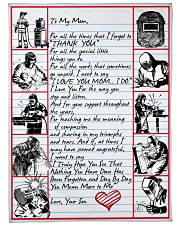 To My Mom,
For all the times that I forgot to
"THANK YOU"
For all the special little
things you do,
For all the words that sometimes
go unsaid, I need to say
"I LOVE YOU MOM... I DO"
I Love You For the way you
stop and listen,
And for your support throughout
the years,
For teaching me the meaning
of compassion
and sharing in my triumphs
and tears. And if, at times I
may have seemed ungrateful,
I want to say
I Truly Hope You See That
Nothing You Have Done Has
Been Forgotten and Day By Day
You Mean More to Me
Love, Your Son